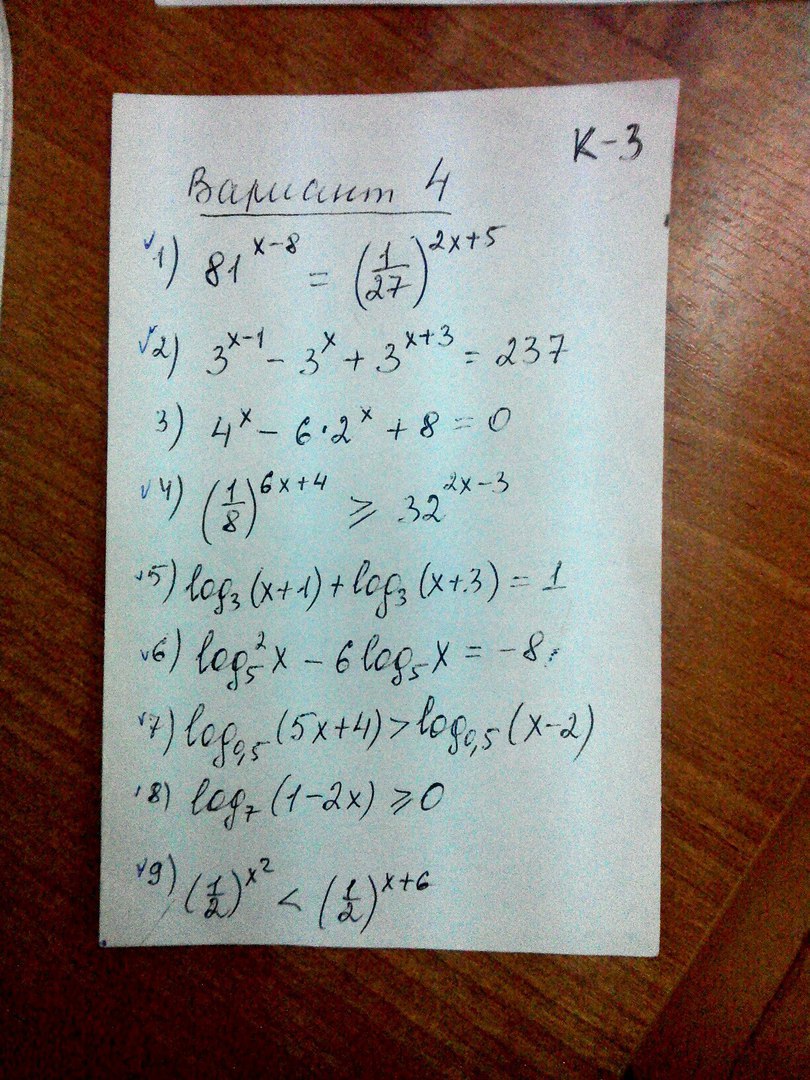 К-3
Вариант 4
1) 81^(x-8) = (1/27)^(2x+5)
2) 3^(x-1) - 3^x + 3^(x+3) = 237
3) 4^x - 6·2^x + 8 = 0
4) (1/8)^(6x+4) ⩾ 32^(2x-3)
5) log₃(x+1) + log₃(x+3) = 1
6) log₅²x - 6log₅x = -8
7) log₀,₅(5x+4) > log₀,₅(x-2)
8) log₇(1-2x) ⩾ 0
9) (1/2)^(x²) < (1/2)^(x+6)